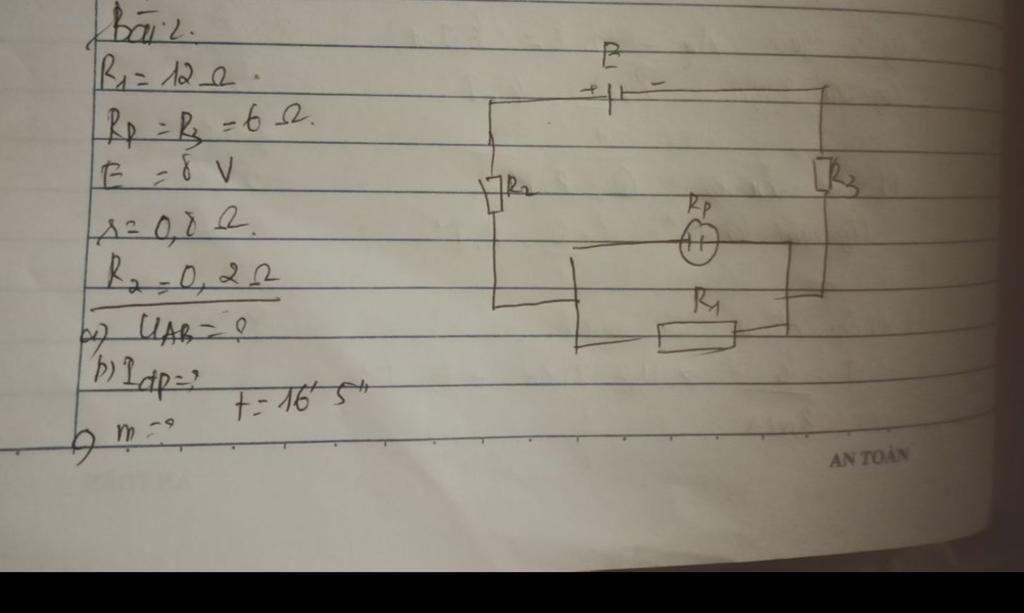 Bài 2.
R1 = 12 Ω.
Rp = R3 = 6 Ω.
E = 8 V
r = 0,8 Ω.
R2 = 0,2 Ω
a) UAB = ?
b) Idp = ?
t = 16' 5"
c) m = ?
E
+ -
R2
R3
Rp
R1
AN TOÀN